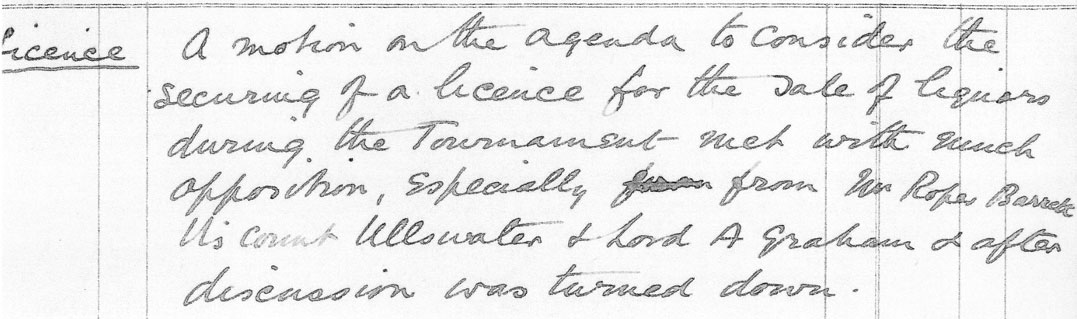 Licence A motion on the agenda to consider the
securing of a licence for the sale of liquors
during the Tournament met with much
opposition, especially from Mr Roper Barrett
Viscount Ullswater & Lord A Graham & after
discussion was turned down.